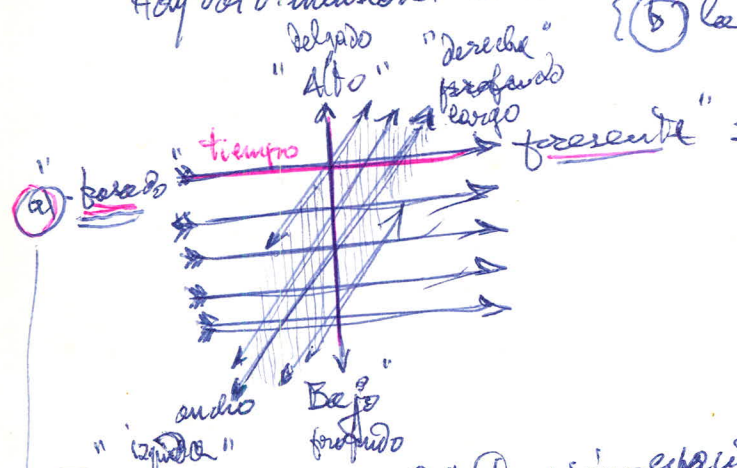 Hay dos dimensiones
{ⓑ la
Delgado
"Alto"
"derecha"
profundo
largo
tiempo
presente" =
ⓐ "pasado"
ancho
"izquierda"
Bajo"
profundo